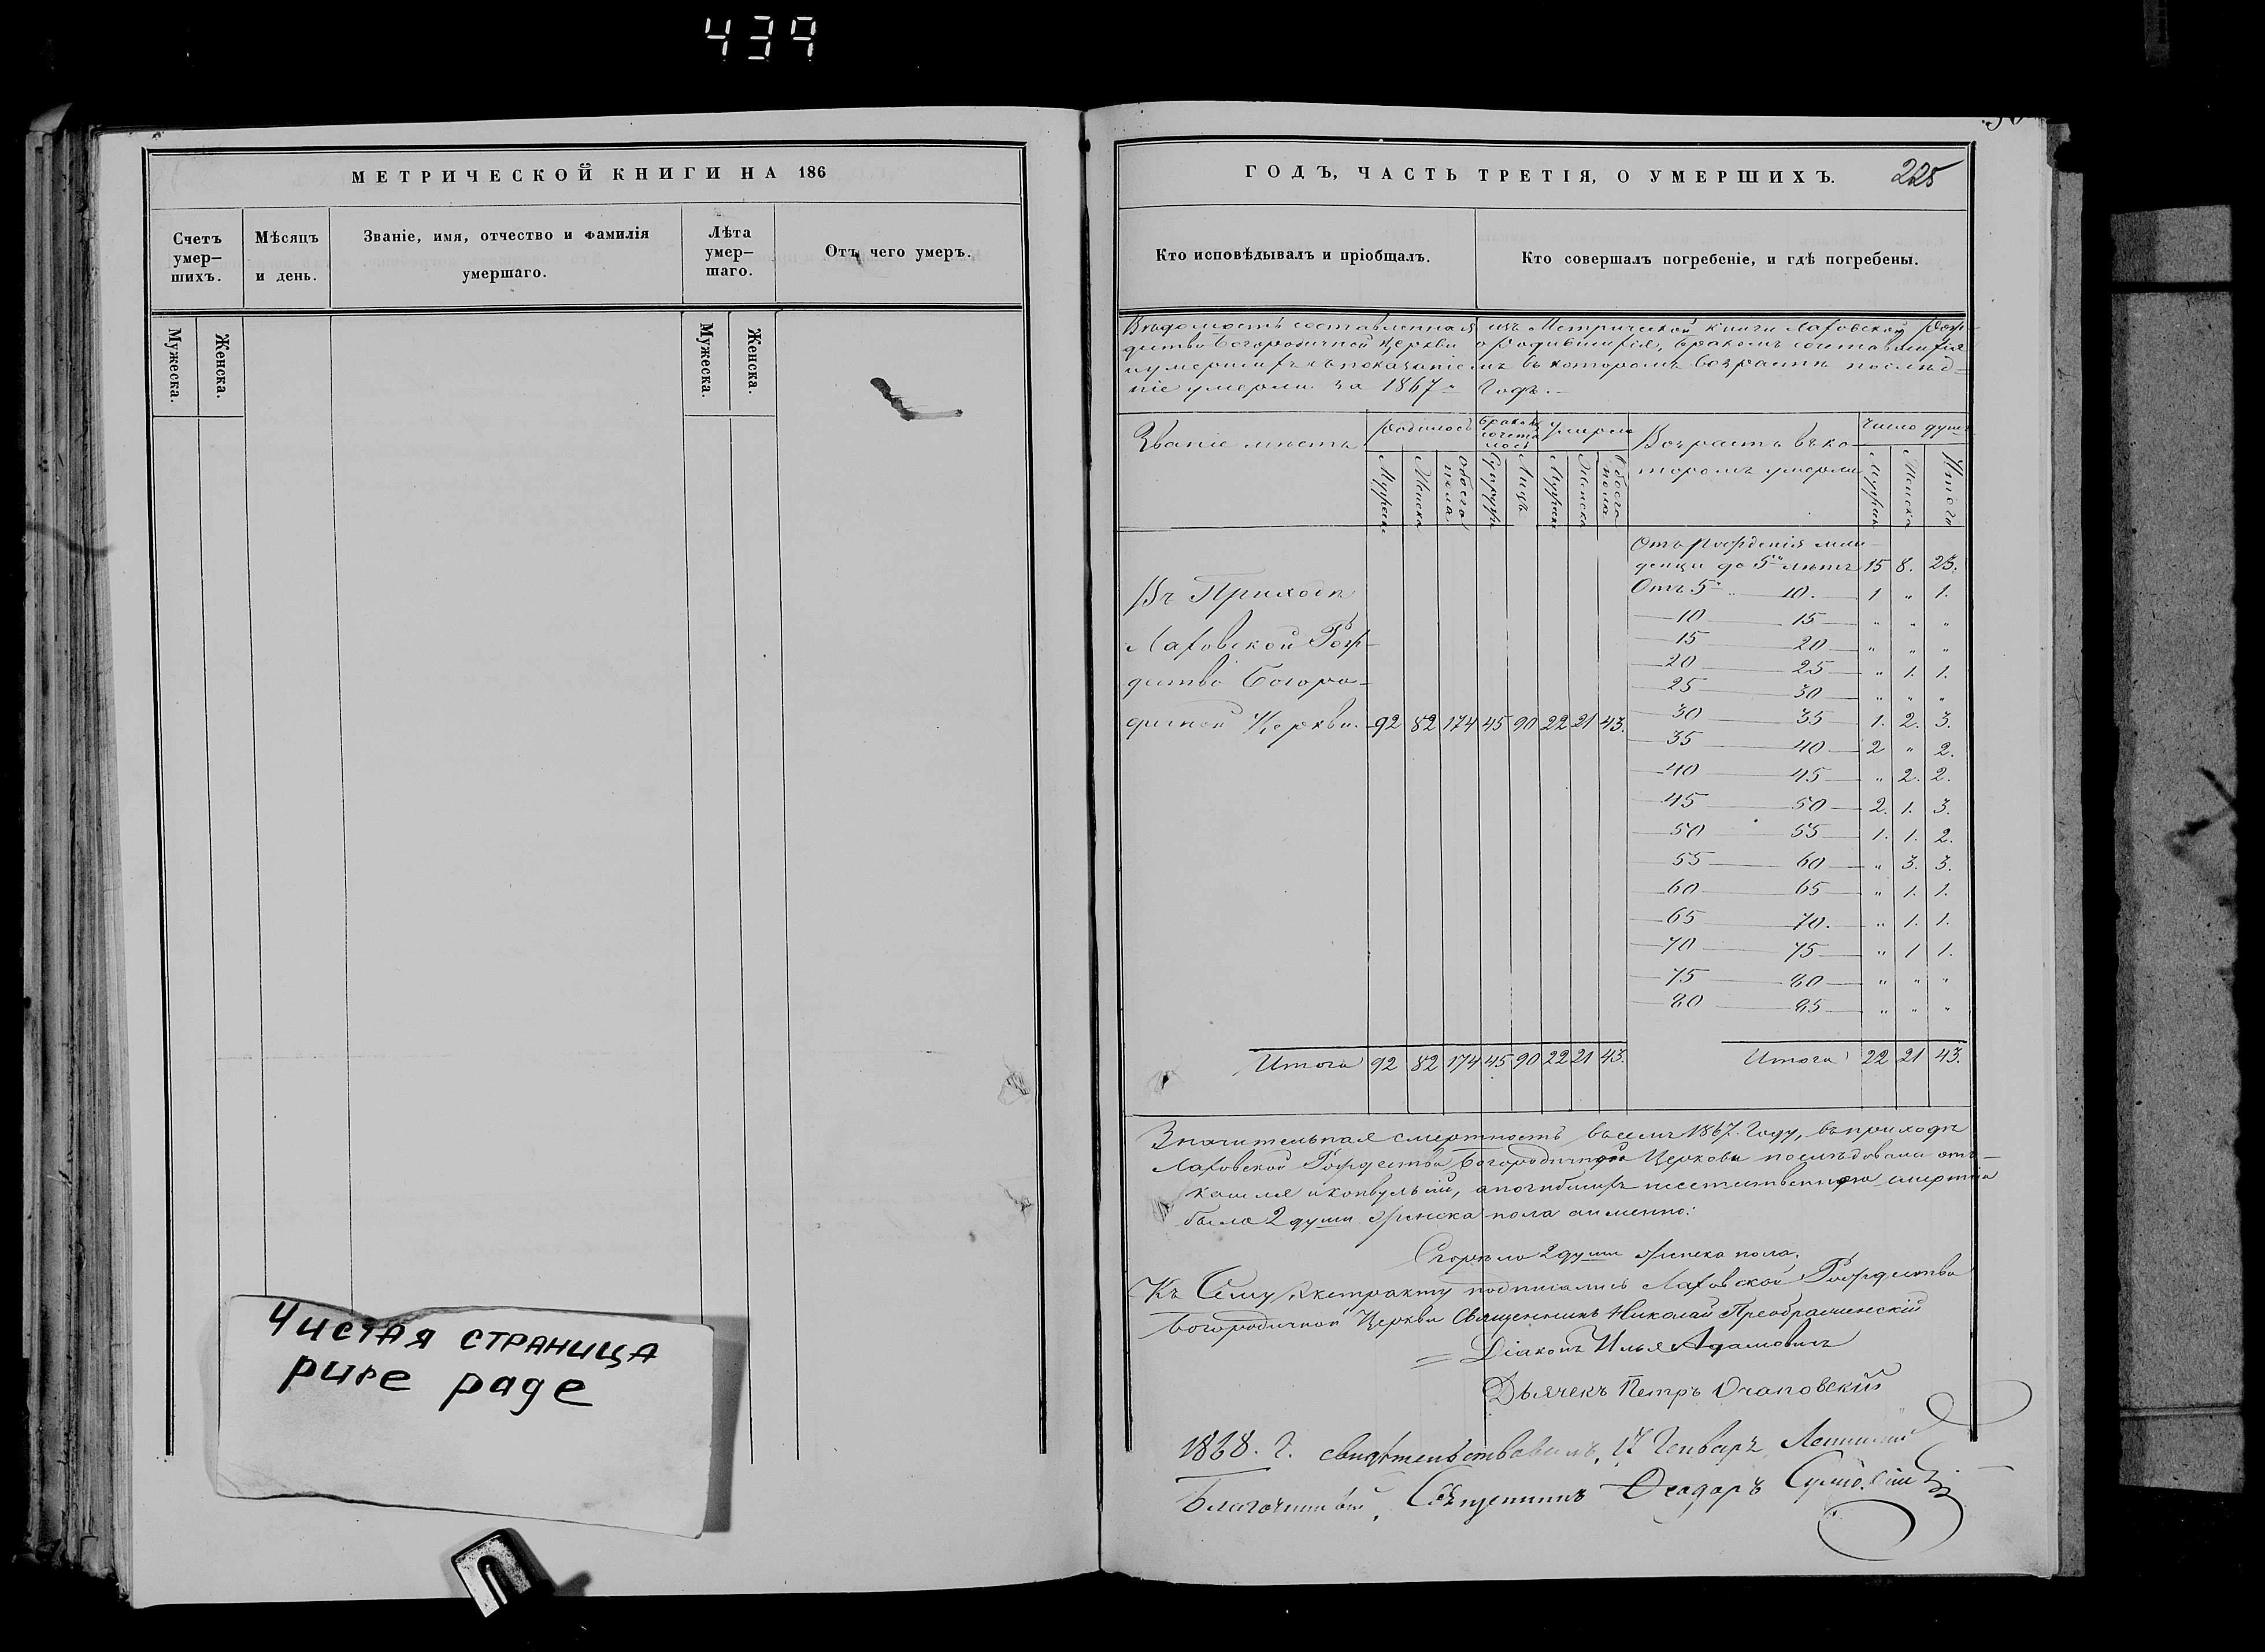 439
МЕТРИЧЕСКОЙ КНИГИ НА 186
Счетъ умер–шихъ.
Мѣсяцъ и день.
Званіе, имя, отчество и фамилія умершаго.
Лѣта умер–шаго.
Отъ чего умеръ.
Мужеска.
Женска.
Мужеска.
Женска.
Чистая страница
pure page
ГОДЪ, ЧАСТЬ ТРЕТІЯ, О УМЕРШИХЪ.
225
Кто исповѣдывалъ и пріобщалъ.
Кто совершалъ погребеніе, и гдѣ погребены.
Вѣдомость составленная изъ Метрической книги Лаховской Рож–
дество Богородичной Церкви о родившихся, бракомъ сочетавшихся
и умершихъ съ показаніемъ въ которомъ возрастѣ послѣд–
ніе умерли за 1867 Годъ.
Званіе мѣстъ
Родилось
Бракомъ сочета лось
Умерло
Возрастъ въ ко–
торомъ умерли
Число душъ
Мужеска
Женска
Обоего пола
Супруж
Лицъ
Мужеска
Женска
Обоего пола
Мужеска
Женска
Итого
Отъ рожденія мла–
денцы до 5 лѣтъ 15 8. 23.
Отъ 5 10. 1 „ 1.
10 15 „ „ „
15 20 „ „ „
20 25 „ 1. 1.
25 30 „ „ „
30 35 1. 2. 3.
35 40 2 „ 2.
40 45 „ 2. 2.
45 50 2. 1. 3.
50 55 1. 1. 2.
55 60 „ 3. 3.
60 65 „ 1. 1.
65 70. „ 1. 1.
70 75 „ 1 1.
75 80 „ „ „
80 85 „ „ „
Въ Приходѣ
Лаховской Рож–
дество Богоро–
дичной Церкви. 92 82 174 45 90 22 21 43.
Итого 92 82 174 45 90 22 21 43.
Итого 22 21 43.
Значительная смертность въ семъ 1867. Году, въ приходѣ
Лаховской Рождество Богородичной Церкви послѣдовала отъ
кашля и конвульсій, а погибшихъ неестественною смертію
было 2 души женска пола а именно:
Сгорѣло 2 души женска пола.
Къ Сему Экстракту подписались Лаховской Рождество
Богородичной Церкви Священникъ Николай Преображенскій
Діаконъ Илья Адамовичъ
Дьячекъ Петръ Очаповскій
1868. г. свидѣтельствовалъ, 17 Генваря
Благочинный, Священникъ Ѳеодоръ